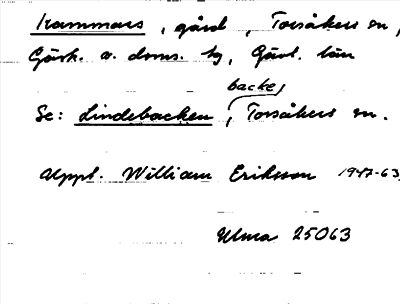 Kammars, gård, Torsåkers sn,
Gästr. ö. doms. hg, Gävl. län
backe,
Se: Lindebacken, Torsåkers sn.
Uppt. William Eriksson 1947-63,
Ulma 25063